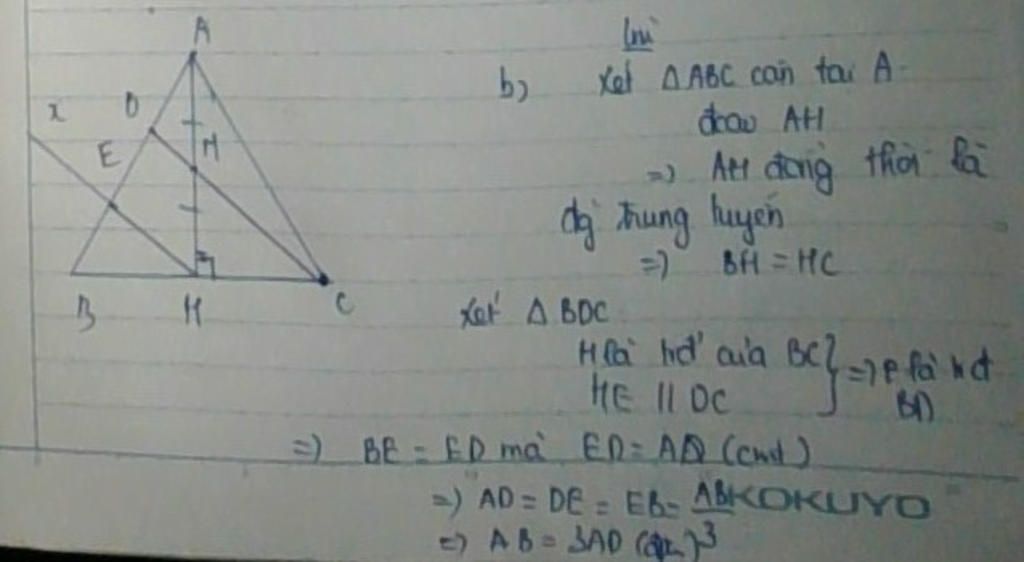 A
x
D
E
M
B
H
C
b) Xét △ABC cân tại A
AH
=> AH đồng thời là
đg trung tuyến
=> BH = HC
Xét △BDC
H là trđ của BC
HE // DC
=> E là trđ
BD
=> BE = ED mà ED = AD (cmt)
=> AD = DE = EB = AB/3
KOKUYO
=> AB = 3AD